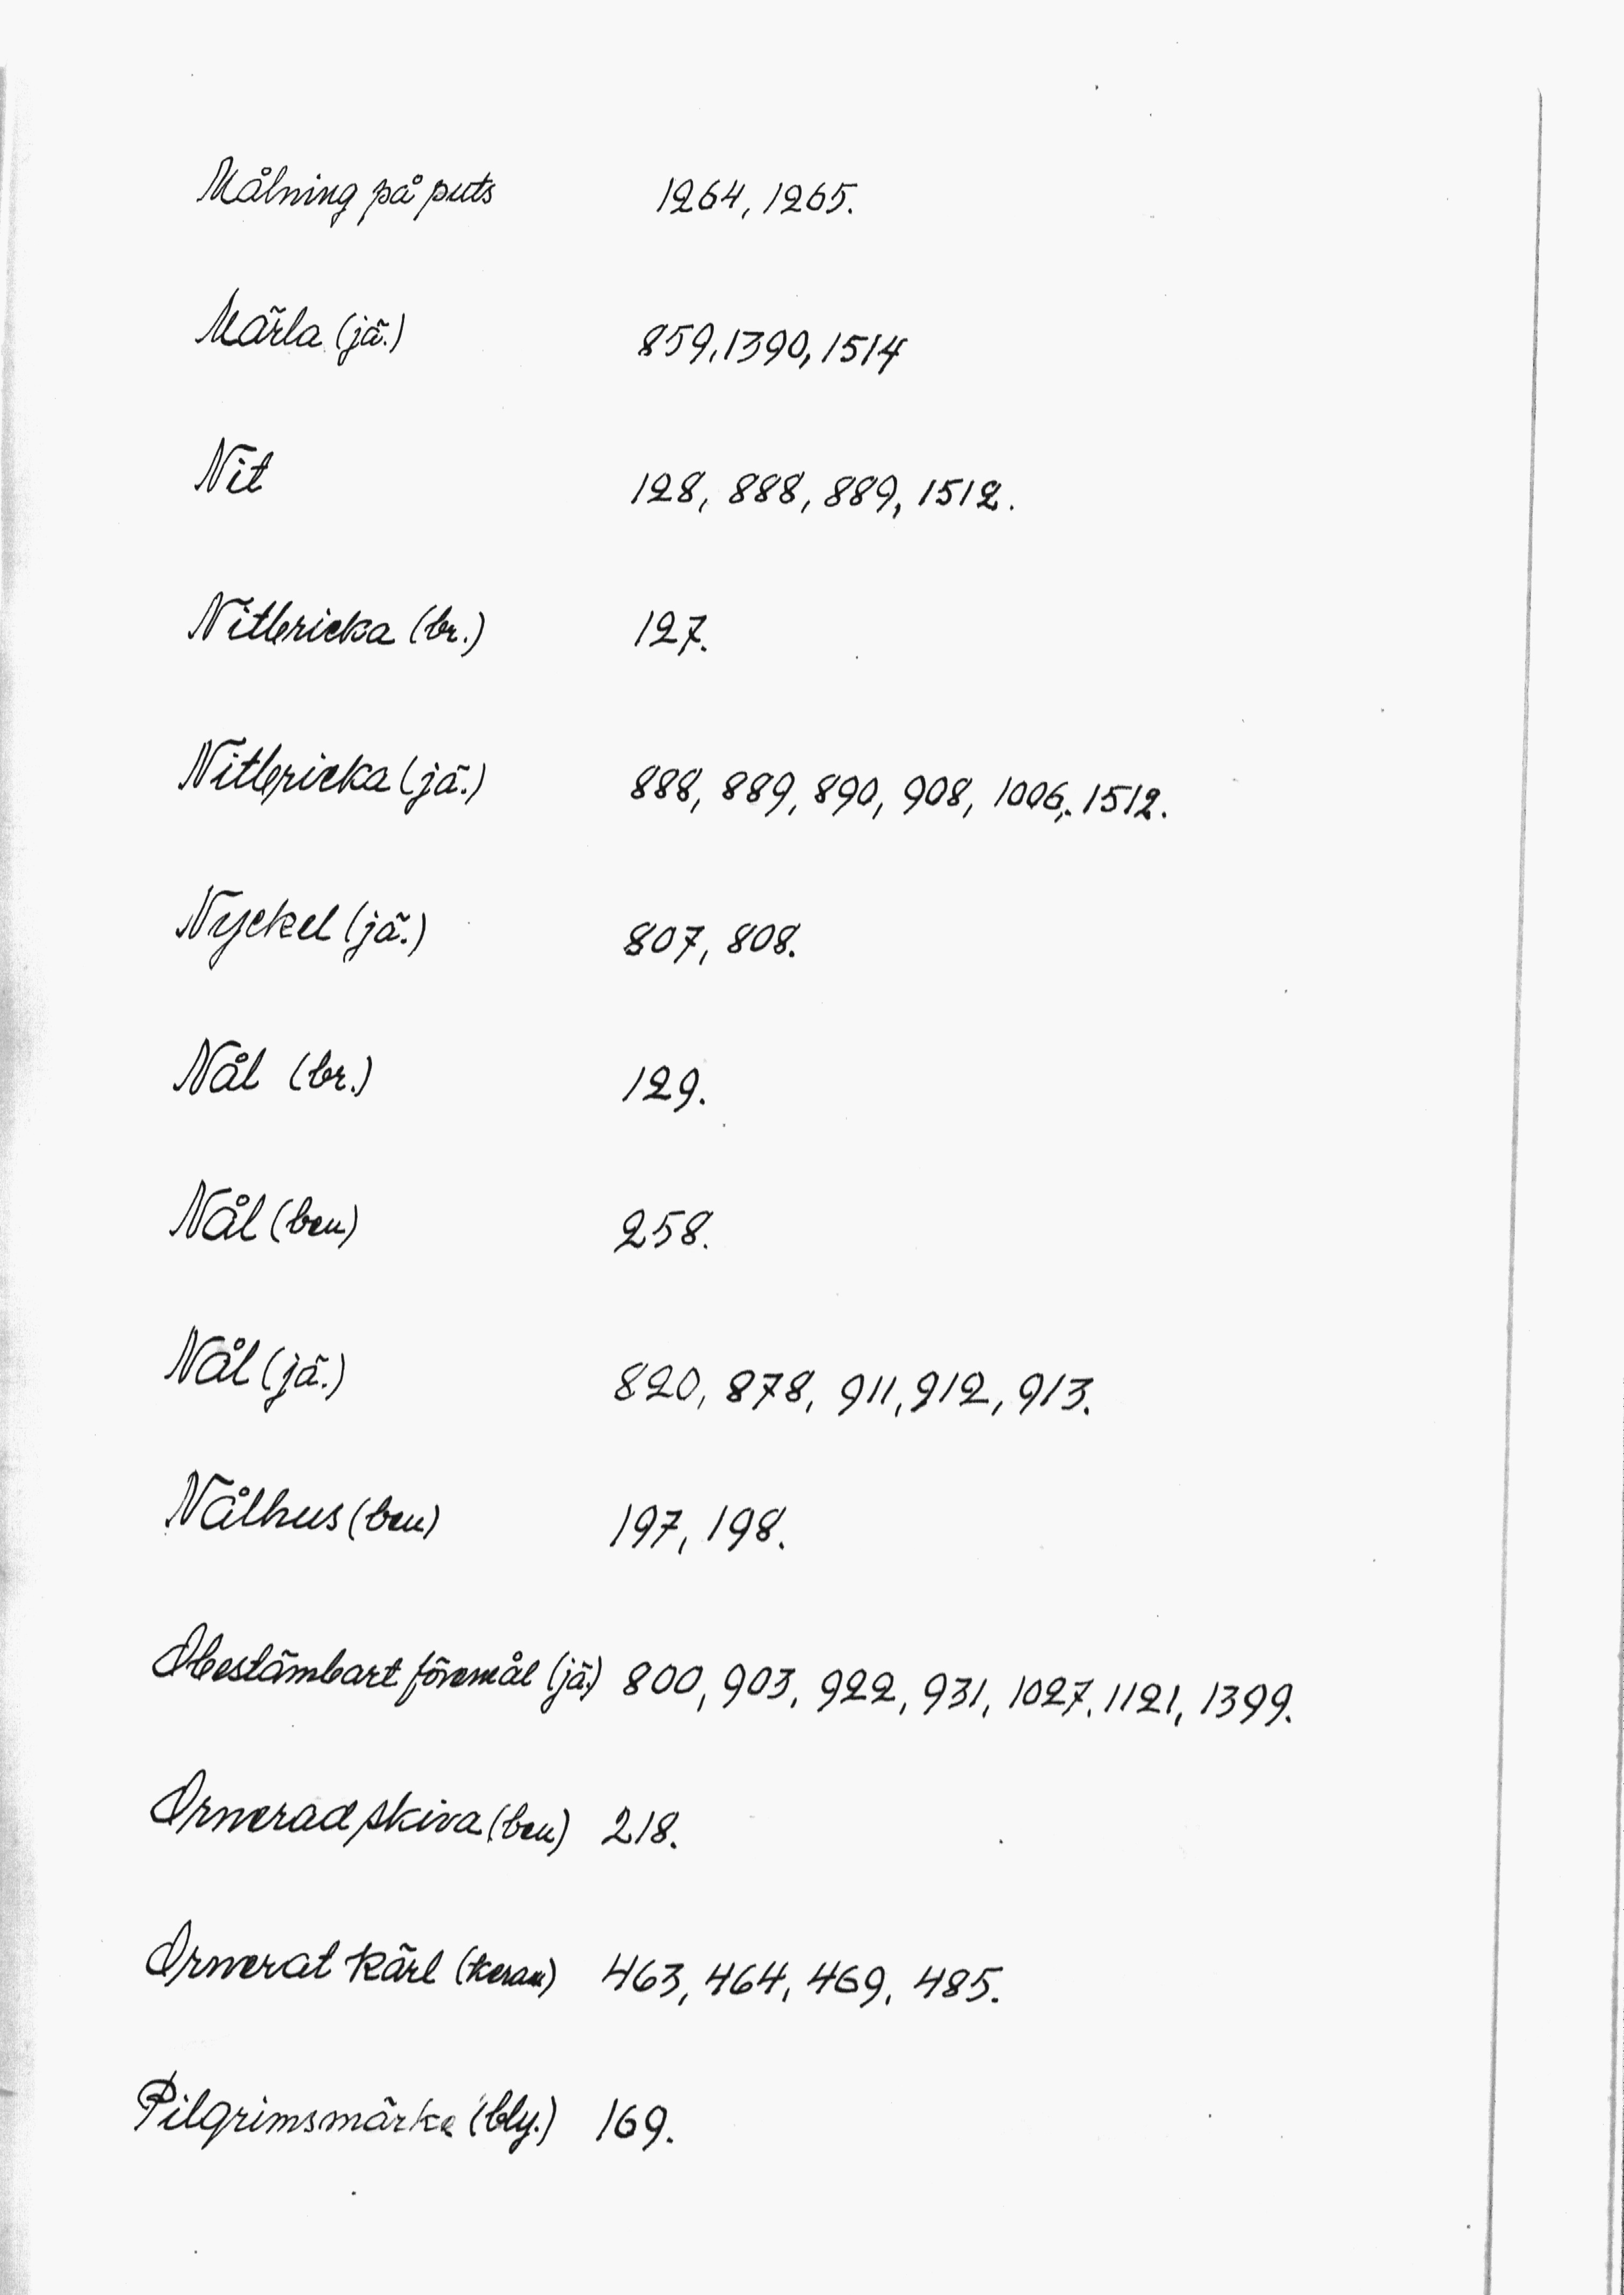 Målning på puts 1264, 1265.
Märla (jä.) 859, 1390, 1514
Nit 128, 888, 889, 1512.
Nitbricka (br.) 127.
Nitbricka (jä.) 888, 889, 890, 908, 1006, 1512.
Nyckel (jä.) 807, 808.
Nål (br.) 129.
Nål (ben) 258.
Nål (jä.) 820, 878, 911, 912, 913.
Nålhus (ben) 197, 198.
Obestämbart föremål (jä.) 800, 903, 922, 931, 1027, 1121, 1399.
Ornerad skiva (ben) 218.
Ornerat kärl (keram) 463, 464, 469, 485.
Pilgrimsmärke (bly.) 169.